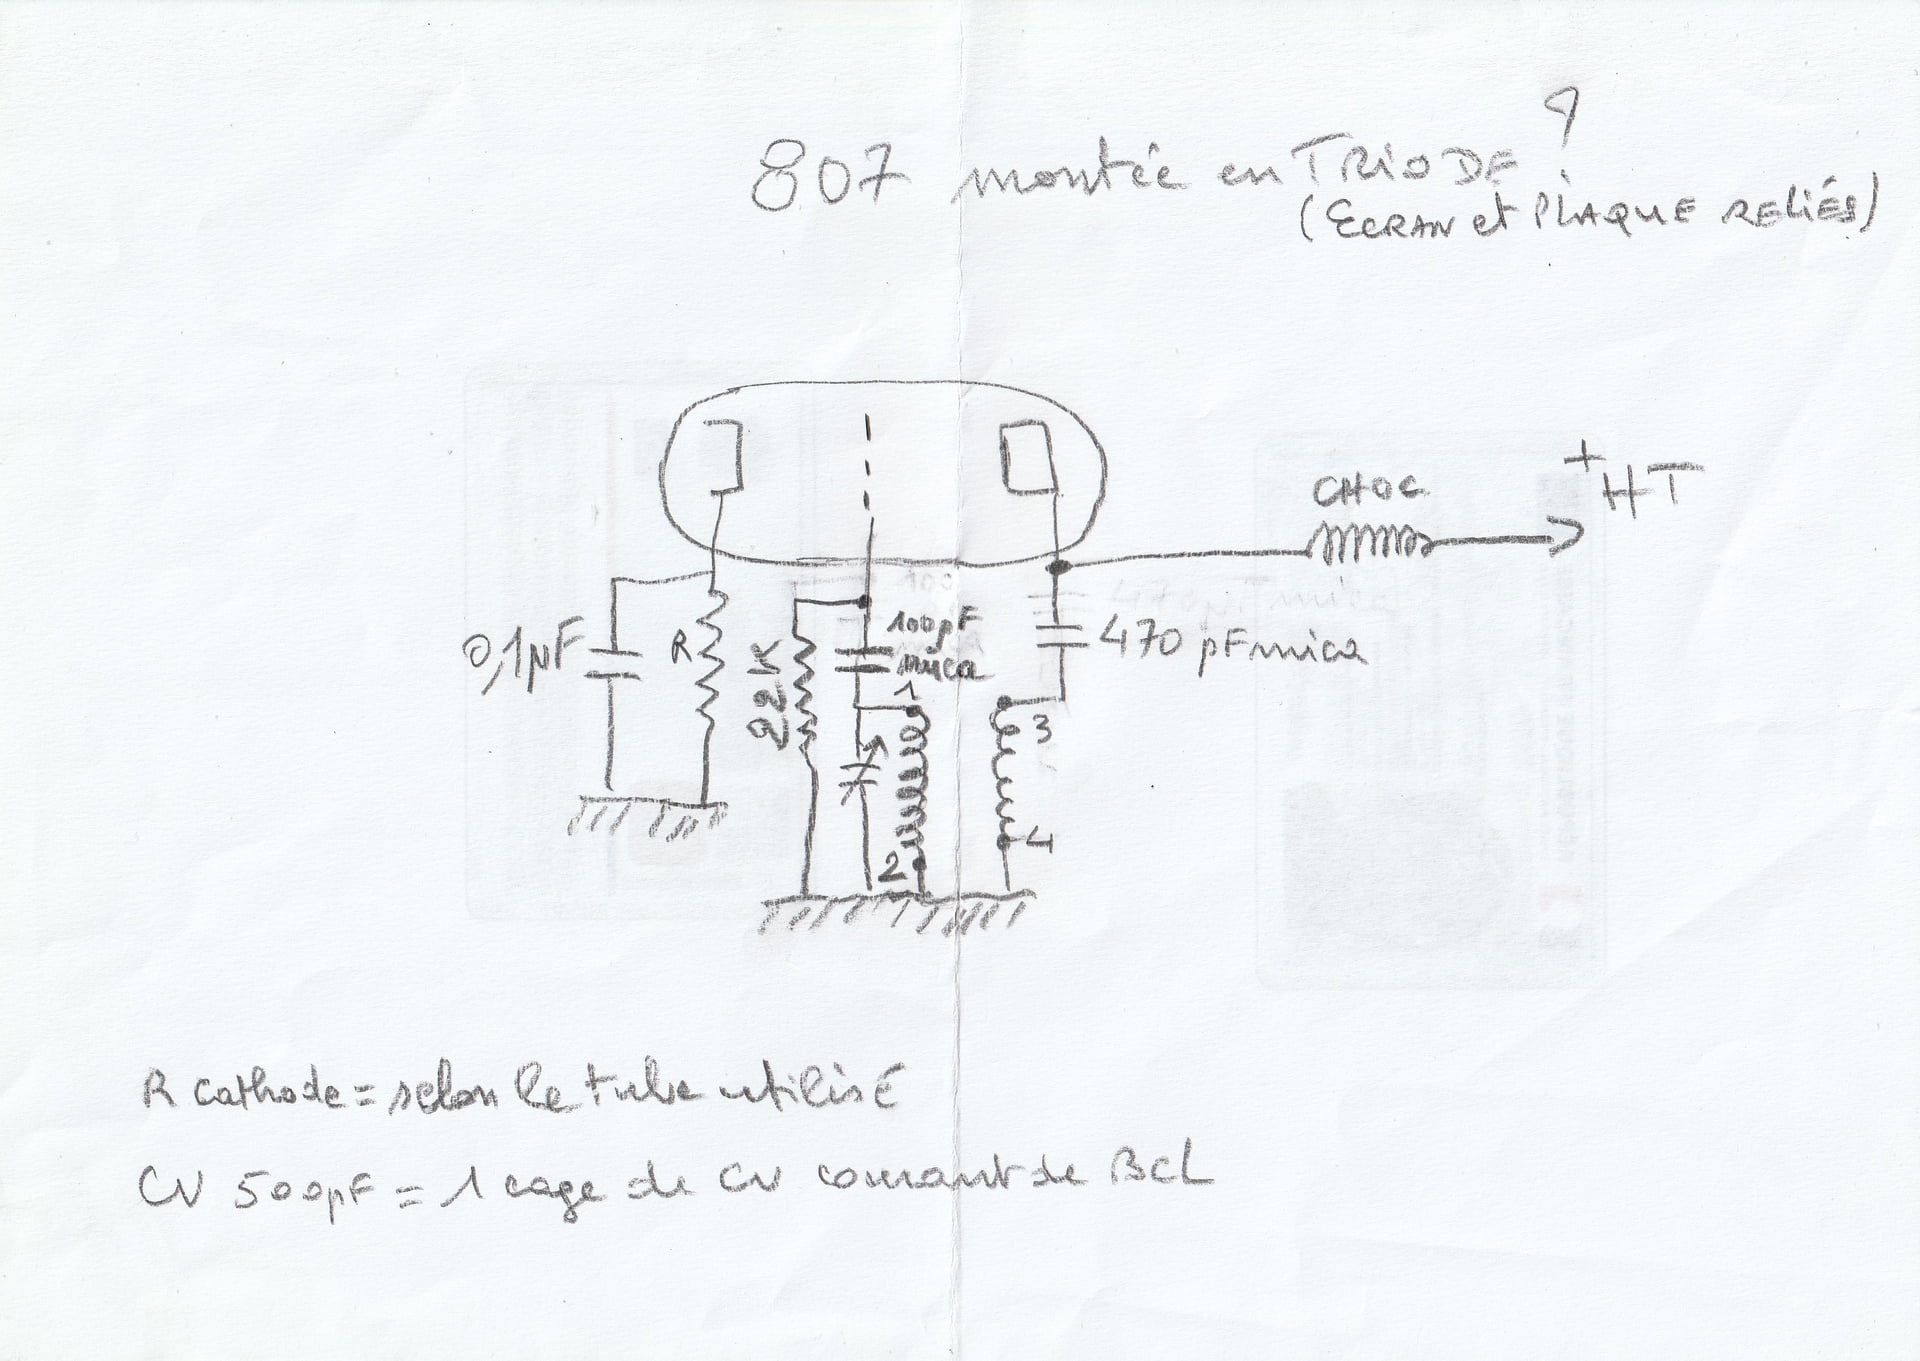 807 montée en TRIODE ?
(ECRAN et PLAQUE RELIÉS)
CHOC
+ HT
0,1µF
R
22K
100pF
mica
470 pF mica
1
2
3
4
R cathode = selon le tube utilisé
CV 500pF = 1 cage de CV courant de BCL